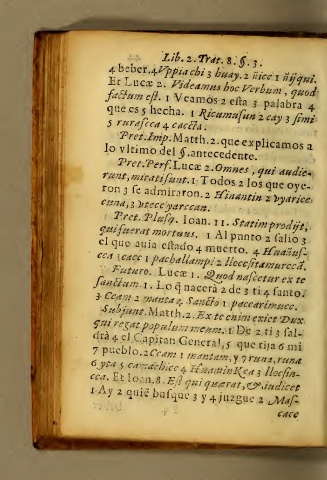 Lib. 2. Trat. 8. §. 3.
4 beber. 4 Vppiachi 3 huay. 2 ñicc 1 ñijqui.
Et Lucæ 2. Videamus hoc Verbum, quod
factum est. 1 Veamos 2 esta 3 palabra 4
que es 5 hecha. 1 Ricumusun 2 cay 3 simi
5 rurascca 4 caccta.
Pret. Imp. Matth. 2. que explicamos a
lo vltimo del §. antecedente.
Pret. Perf. Lucæ 2. Omnes, qui audie-
runt, mirati sunt. 1 Todos 2 los que oye-
ron 3 se admiraron. 2 Hinantin 2 vyaricc
cuna, 3 vtecc yarccan.
Pret. Plusq. Ioan. 11. Statim prodijt,
qui fuerat mortuus. 1 Al punto 2 salio 3
el que auia estado 4 muerto. 4 Huañus-
cca 3 cacc 1 pachallampi 2 llocsitamurcca.
Futuro. Lucæ 1. Quod nascetur ex te
sanctum. 1. Lo q̃ nacerà 2 de 3 ti 4 santo.
3 Ccam 2 manta 4 Sancto 1 paccarimucc.
Subjunt. Matth. 2. Ex te enim exiet Dux
qui regat populum meum. 1 De 2 ti 3 sal-
drà 4 el Capitan General, 5 que rija 6 mi
7 pueblo. 2 Ccam 1 mantam, y 7 runa, runa
6 yta 5 camachicc 4 Huamin 3 llocsin-
cca. Et Ioan. 8. Est qui quærat, & iudicet
1 Ay 2 quiẽ busque 3 y 4 juzgue 2 Mas-
cacc